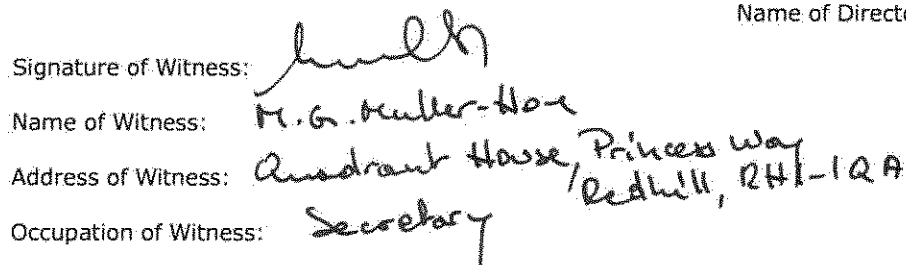 Name of Directo
Signature of Witness:
Name of Witness: M.G. Muller-Hoe
Address of Witness: Quadrant House, Princess Way
Redhill, RH1-1QA
Occupation of Witness: Secretary